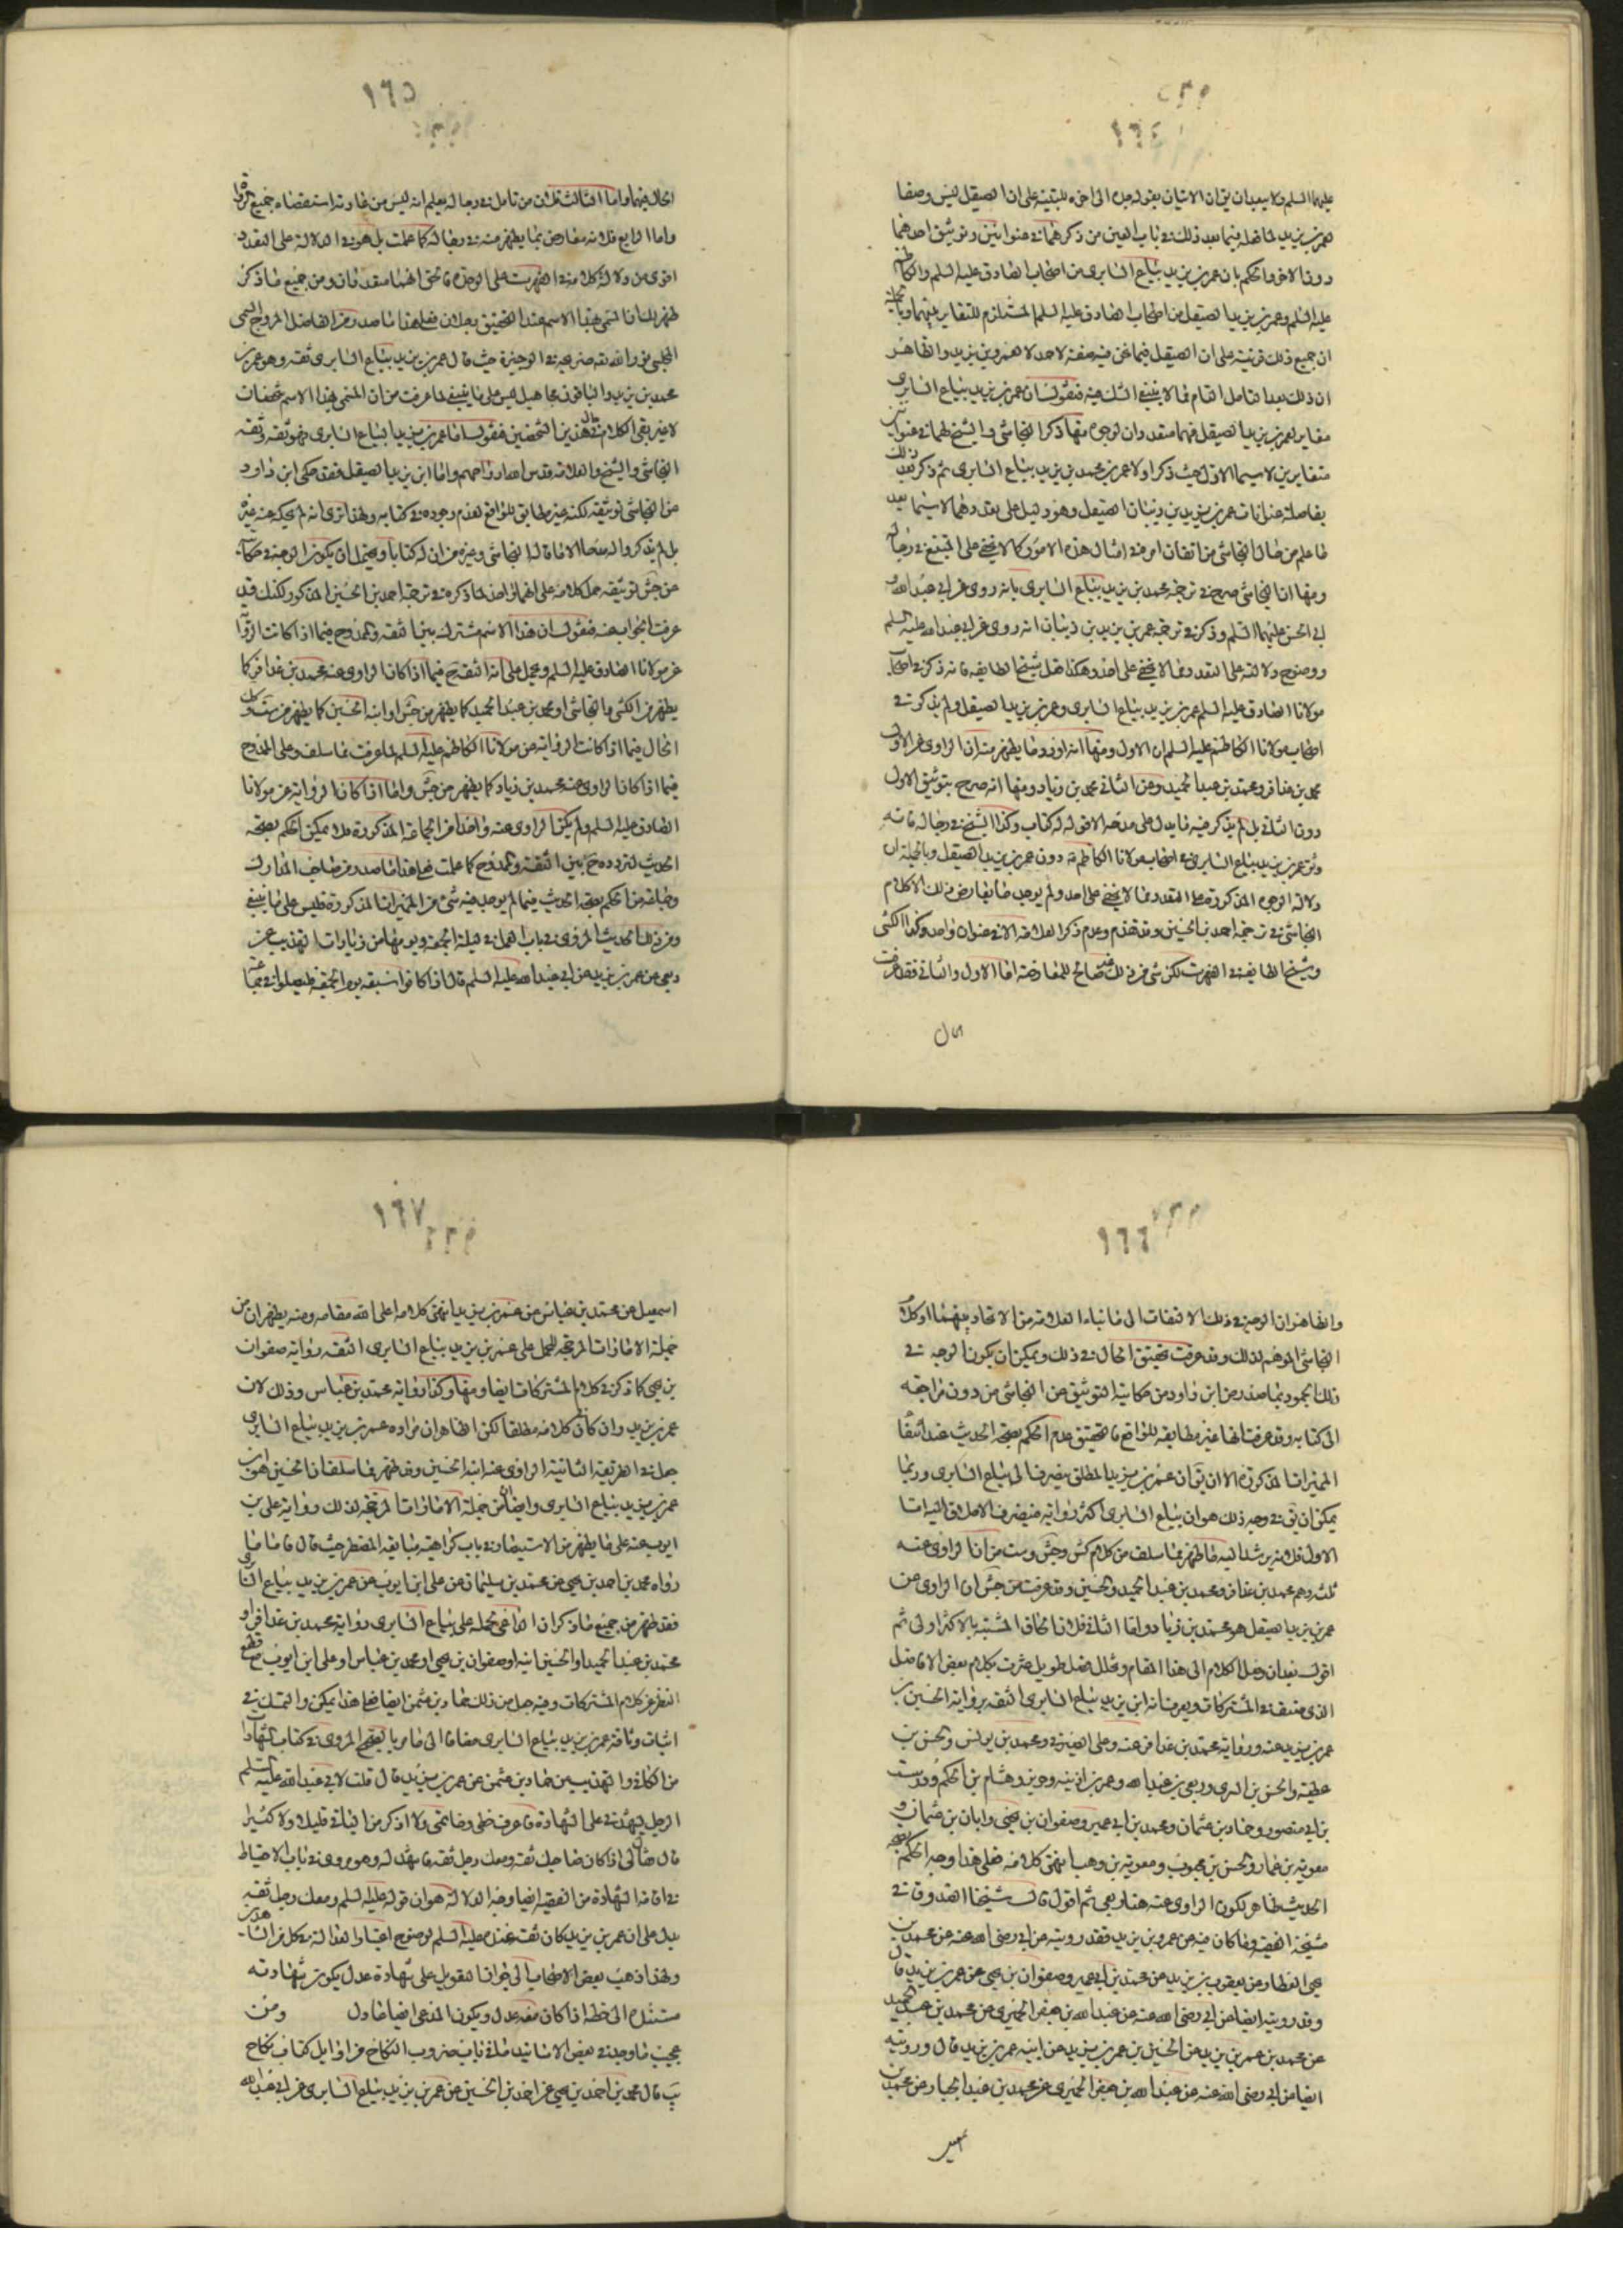 ١٦٤
عليهما السلم ولا يبعد ان يقال ان الاتيان بقوله جل الى اخره للتنبيه على ان الصيقل ليس وصفا
لعمر بن يزيد لما فعله فيما بعد ذلك في باب العين من ذكرهما في عنوانين وتوثيق احدهما
دون الاخر والحكم بان عمر بن يزيد بياع السابرى من اصحاب الصادق عليه السلم والكاظم
عليه السلم وعمر بن يزيد الصيقل من اصحاب الصادق عليه السلم المستلزم للتغاير بينهما وبالجملة
ان جميع ذلك قرينة على ان الصيقل فيما نحن فيه صفة لاحد لا لعمر بن يزيد والظاهر
ان ذلك بعد التامل التام مما لا ينبغي الشك فيه فنقول ان عمر بن يزيد بياع السابرى
مغاير لعمر بن يزيد الصيقل فهما متعددان لوجوه منها ذكر النجاشي والشيخ لهما في عنوانين
متغايرين لا سيما الاول حيث ذكر اولا عمر بن محمد بن يزيد بياع السابرى ثم ذكر بعد ذلك
بفاصلة عنوانات عمر بن يزيد بن ذبيان الصيقل وهو دليل على تعددهما لا سيما بعد
ما علم من حال النجاشي من اتقان امره في امثال هذه الامور كما لا يخفى على المتتبع في رجاله
ومنها ان النجاشي صرح في ترجمة محمد بن يزيد بياع السابرى بانه روى عن ابي عبد الله و
ابي الحسن عليهما السلم وذكر في ترجمة عمر بن يزيد بن ذبيان انه روى عن ابي عبد الله عليه السلم
ووضوح دلالته على التعدد مما لا يخفى على احد وهكذا فعل شيخ الطايفة فانه ذكر في اصحاب
مولانا الصادق عليه السلم عمر بن يزيد بياع السابرى وعمر بن يزيد الصيقل ولم يذكر في
اصحاب مولانا الكاظم عليه السلم الا الاول ومنها انه اورد ما يظهر منه ان الراوى عن الاول
محمد بن عذافر ومحمد بن عبد الحميد وعن الثاني محمد بن زياد ومنها انه صرح بتوثيق الاول
دون الثاني بل لم يذكر فيه ما يدل على مدحه الا قوله له كتاب وكذا الشيخ في رجاله فانه
وثق عمر بن يزيد بياع السابرى في اصحاب مولانا الكاظم دون عمر بن يزيد الصيقل وبالجملة ان
دلالة الوجوه المذكورة على التعدد مما لا يخفى على احد ولم يوجد ما يعارض ذلك الا كلام
النجاشي في ترجمة احمد بن الحسين وقد تقدم وعدم ذكر العلامة الا في عنوان واحد وكذا الكشي
وشيخ الطايفة في الفهرست لكن شئ من ذلك غير صالح للمعارضة اما الاول والثاني فقد عرفت
الحال
١٦٥
الحال فيهما واما الثالث فلان من تامل في رجاله يعلم انه ليس من عادته استقصاء جميع الرواة
واما الرابع فلانه معارض بما يظهر منه في رجاله كما علمت بل هو في الدلالة على التعدد
اقوى من دلالة كلامه في الفهرست على الوحدة فالحق انهما متعددان ومن جميع ما ذكر
ظهر لك ان المسمى بهذا الاسم عند التحقيق رجلان فعلى هذا ما صدر من الفاضل المروج المجلسي
المجلسي نور الله تربته في الوجيزة حيث قال عمر بن يزيد بياع السابرى ثقة وهو عمر بن
محمد بن يزيد والباقون مجاهيل ليس على ما ينبغي لما عرفت من ان المسمى بهذا الاسم شخصان
لا غير بقي الكلام في حال هذين الشخصين فنقول اما عمر بن يزيد بياع السابرى فهو ثقة وثقه
النجاشي والشيخ والعلامة قدس الله ارواحهم واما ابن يزيد الصيقل فقد حكى ابن داود
عن النجاشي توثيقه لكنه غير مطابق للواقع لعدم وجوده في كتابه ولهذا ترى انه لم يحكه عنه غيره
بل لم يذكروا له مدحا الا ما قاله النجاشي وغيره من ان له كتابا ويحتمل ان يكون الوجه في حكاية
عن جش توثيقه حمل كلامه على انهما واحد لما ذكره في ترجمة احمد بن الحسين المذكور لكنك قد
عرفت الجواب عنه فنقول ان هذا الاسم مشترك بين الثقة والممدوح فيما اذا كانت الرواية
عن مولانا الصادق عليه السلم ويحمل على انه الثقة فيما اذا كان الراوى عنه محمد بن عذافر كما
يظهر من الكشي والنجاشي او محمد بن عبد الحميد كما يظهر من جش او ابنه الحسين كما يظهر من ست وكذا
الحال فيما اذا كانت الرواية عن مولانا الكاظم عليه السلم لما عرفت مما سلف وعلى الممدوح
فيما اذا كان الراوى عنه محمد بن زياد كما يظهر من جش واما اذا كان الرواية عن مولانا
الصادق عليه السلم ولم يكن الراوى عنه واحدا من الجماعة المذكورة فلا يمكن الحكم بصحة
الحديث لتردده ح بين الثقة والممدوح كما علمت فعلى هذا ما صدر من صاحب المدارك
وجماعة من الحكم بصحة الحديث فيما لم يوجد فيه شئ من المميزات المذكورة فليس على ما ينبغي
ومن ذلك الحديث المروي في باب العمل في ليلة الجمعة ويومها من زيادات التهذيب عن
ربعي عن عمر بن يزيد عن ابي عبد الله عليه السلم قال اذا كانوا سبعة يوم الجمعة فليصلوا في جماعة
١٦٦
والظاهر ان الوجه في ذلك الالتفات الى ما بناه العلامة من الاتحاد بينهما او كلام
النجاشي الموهم لذلك وقد عرفت تحقيق الحال في ذلك ويمكن ان يكون الوجه في
ذلك الجمود بما صدر من ابن داود من حكاية التوثيق عن النجاشي من دون مراجعة
الى كتابه وقد عرفت انها غير مطابقة للواقع فالتحقيق عدم الحكم بصحة الحديث عند انتفاء
المميزات المذكورة الا ان يقال ان عمر بن يزيد المطلق ينصرف الى بياع السابرى وربما
يمكن ان يق في وجه ذلك هو ان بياع السابرى اكثر رواية فينصرف الاطلاق اليه اما
الاول فلانه يرشد اليه ما ظهر مما سلف من كلام كش وجش وست من ان الراوى عنه
ثلثة وهم محمد بن عذافر ومحمد بن عبد الحميد والحسين وقد عرفت من جش ان الراوى عن
عمر بن يزيد الصيقل هو محمد بن زياد واما الثاني فلان الحاق المشتبه بالاكثر اولى ثم
اقول بعد ان وصل الكلام الى هذا المقام وتخلل فصل طويل عثرت بكلام بعض الافاضل
الذى صنف في المشتركات ويعرف انه ابن يزيد بياع السابرى الثقة برواية الحسين بن
عمر بن يزيد عنه ورواية محمد بن عذافر عنه وعلى الصيرفي ومحمد بن يونس والحسن بن
عطية والحسن بن السرى وربعي بن عبد الله وعمر بن اذينة وحريز وهشام بن الحكم ودرست
بن ابي منصور وحماد بن عثمان ومحمد بن ابي عمير وصفوان بن يحيى وابان بن عثمان و
معوية بن عمار والحسن بن محبوب ومعوية بن وهب انتهى كلامه فعلى هذا وجه الحكم بصحة
الحديث ظاهر لكون الراوى عنه هنا ربعي ثم اقول قال شيخنا الصدوق في
مشيخة الفقيه وما كان فيه عن عمر بن يزيد فقد رويته عن ابي رضى الله عنه عن محمد بن
يحيى العطار عن يعقوب بن يزيد عن محمد بن ابي عمير وصفوان بن يحيى عن عمر بن يزيد قال
وقد رويته ايضا عن ابي رضى الله عنه عن عبد الله بن جعفر الحميرى عن محمد بن عبد الحميد
عن محمد بن عمر بن يزيد عن الحسين بن عمر بن يزيد عن ابيه عمر بن يزيد قال ورويته
ايضا عن ابي رضى الله عنه عن عبد الله بن جعفر الحميرى عن محمد بن عبد الجبار عن محمد بن
اسمعيل
١٦٧
اسمعيل عن محمد بن عباس عن عمر بن يزيد انتهى كلامه اعلى الله مقامه ومنه يظهر ان من
جملة الامارات المرجحة للحمل على عمر بن يزيد بياع السابرى الثقة رواية صفوان
بن يحيى كما ذكر في كلام المشتركات ايضا ومنها وكذا رواية محمد بن عباس وذلك لان
عمر بن يزيد وان كان كلامه مطلقا لكن الظاهر ان مراده عمر بن يزيد بياع السابرى
جعل في الطريقة الثانية الراوى عنه ابنه الحسين وقد ظهر مما سلف ان الحسين هو ابن
عمر بن يزيد بياع السابرى وايضا من جملة الامارات المرجحة لذلك رواية على بن
ايوب عنه على ما يظهر من الاستبصار في باب كراهية مبايعة المضطر حيث قال فاما ما
رواه محمد بن احمد بن يحيى عن محمد بن سليمان عن على ابن ايوب عن عمر بن يزيد بياع السابرى
فقد ظهر من جميع ما ذكر ان الداعي لحمله على بياع السابرى رواية محمد بن عذافر او
محمد بن عبد الحميد او الحسين ابنه او صفوان بن يحيى او محمد بن عباس او على ابن ايوب مع قطع
النظر عن كلام المشتركات وفيه جعل من ذلك حماد بن عثمن ايضا فعلى هذا يمكن التمسك في
اثبات وثاقة عمر بن يزيد بياع السابرى مضافا الى ما مر بالصحيح المروى في كتاب الشهادات
من الكافي والتهذيب عن حماد بن عثمن عن عمر بن يزيد قال قلت لابي عبد الله عليه السلم
الرجل يشهدني على الشهادة فاعرف خطي وخاتمي ولا اذكر من الباقي قليلا ولا كثيرا
قال فقال لى اذا كان صاحبك ثقة ومعك رجل ثقة فاشهد له وهو مروى في باب الاحتياط
في اقامة الشهادة من الفقيه ايضا وجه الدلالة هو ان قوله عليه السلم ومعك رجل ثقة
يدل على ان عمر بن يزيد كان ثقة عنده عليه السلم لوضوح اعتبار العدالة في كل من الشاهدين
ولهذا ذهب بعض الاصحاب الى جواز التعويل على شهادة عدل يكون شهادته
مستندا الى خطه اذا كان معه عدل ويكون المدعى ايضا عادل ومن
عجيب ما وجد في بعض الاسانيد ما في باب ضروب النكاح من اوايل كتاب نكاح
يب قال محمد بن احمد بن يحيى عن احمد بن الحسين عن عمر بن يزيد بياع السابرى عن ابي عبد الله